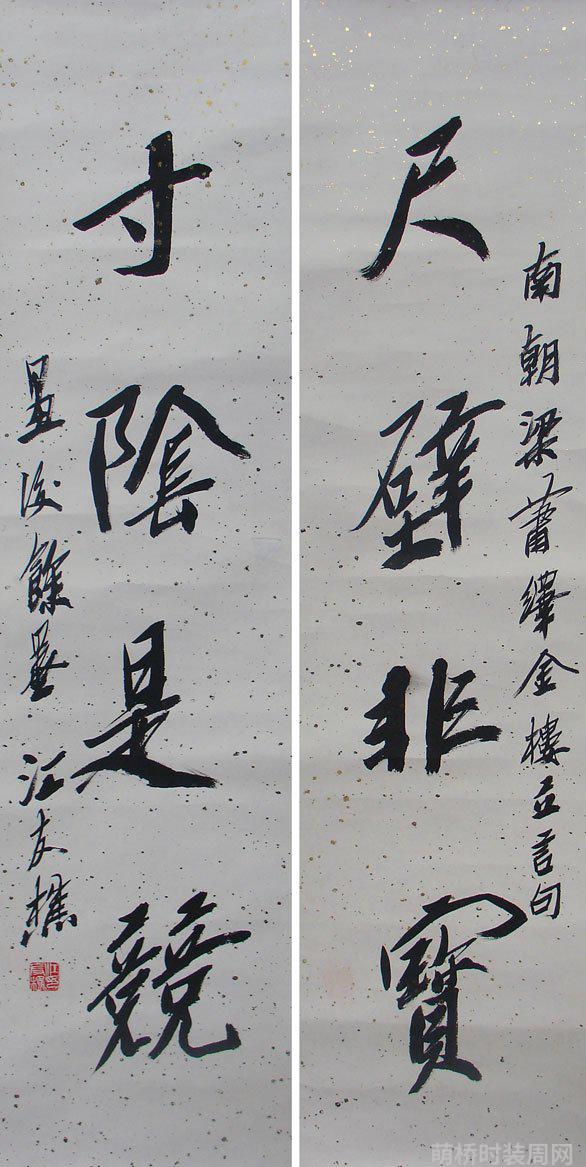 南朝梁蕭繹金樓立言句
尺璧非寶
寸陰是競
餘墨 汪友樵
萌桥时装周网